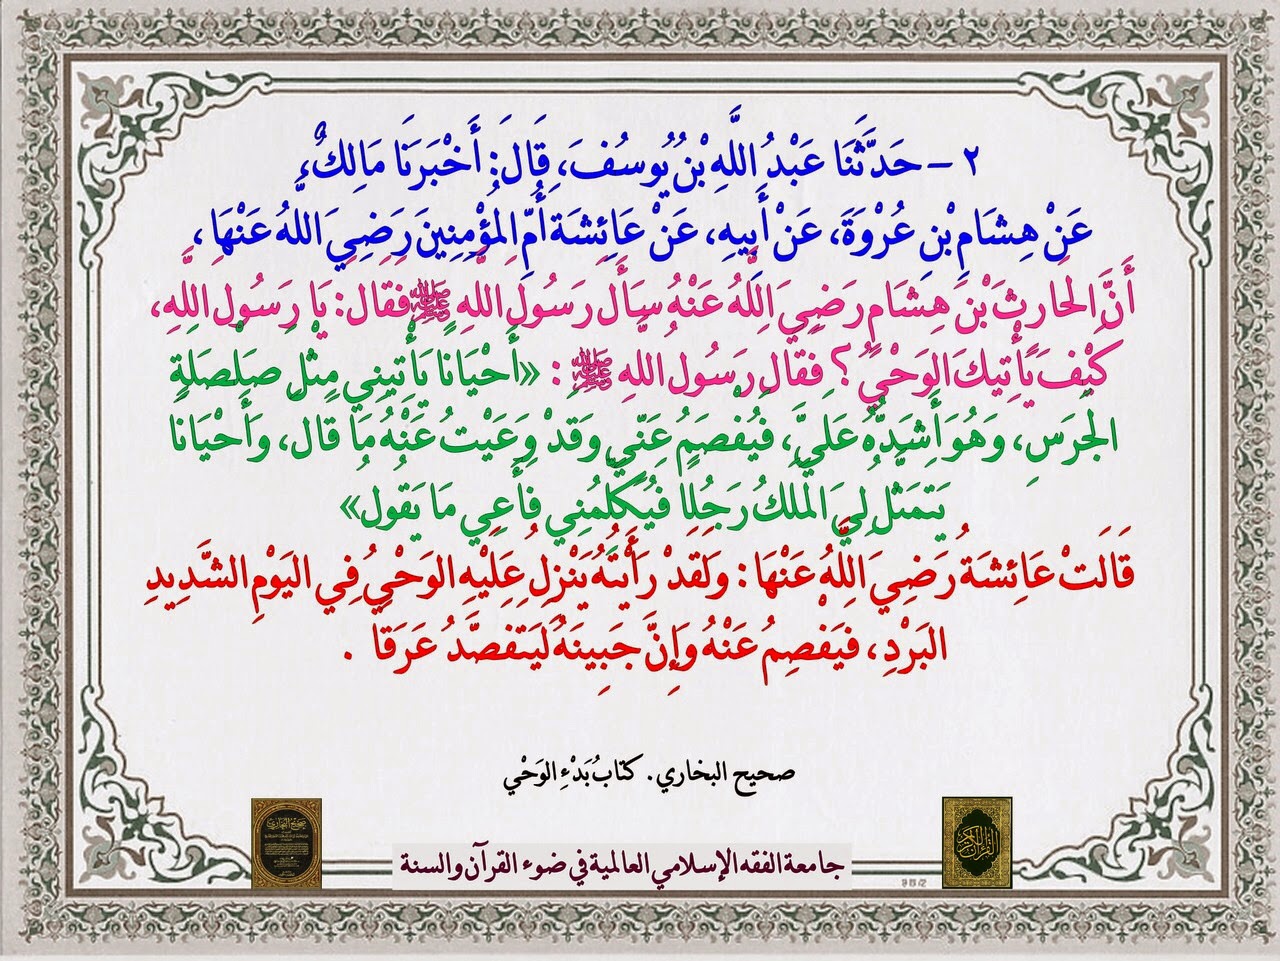 ٢ – حَدَّثَنَا عَبْدُ اللَّهِ بْنُ يُوسُفَ، قَالَ: أَخْبَرَنَا مَالِكٌ،
عَنْ هِشَامِ بْنِ عُرْوَةَ، عَنْ أَبِيهِ، عَنْ عَائِشَةَ أُمِّ المُؤْمِنِينَ رَضِيَ اللهُ عَنْهَا،
أَنَّ الحَارِثَ بْنَ هِشَامٍ رَضِيَ اللَّهُ عَنْهُ سَأَلَ رَسُولَ اللَّهِ ﷺ فَقَالَ: يَا رَسُولَ اللَّهِ،
كَيْفَ يَأْتِيكَ الوَحْيُ؟ فَقَالَ رَسُولُ اللهِ ﷺ: «أَحْيَانًا يَأْتِينِي مِثْلَ صَلْصَلَةِ
الجَرَسِ، وَهُوَ أَشَدُّهُ عَلَيَّ، فَيُفْصَمُ عَنِّي وَقَدْ وَعَيْتُ عَنْهُ مَا قَالَ، وَأَحْيَانًا
يَتَمَثَّلُ لِيَ المَلَكُ رَجُلًا فَيُكَلِّمُنِي فَأَعِي مَا يَقُولُ»
قَالَتْ عَائِشَةُ رَضِيَ اللَّهُ عَنْهَا: وَلَقَدْ رَأَيْتُهُ يَنْزِلُ عَلَيْهِ الوَحْيُ فِي اليَوْمِ الشَّدِيدِ
البَرْدِ، فَيَفْصِمُ عَنْهُ وَإِنَّ جَبِينَهُ لَيَتَفَصَّدُ عَرَقًا .
صحيح البخاري. كتابُ بَدْءِ الوَحْي
جامعة الفقه الإسلامي العالمية في ضوء القرآن والسنة